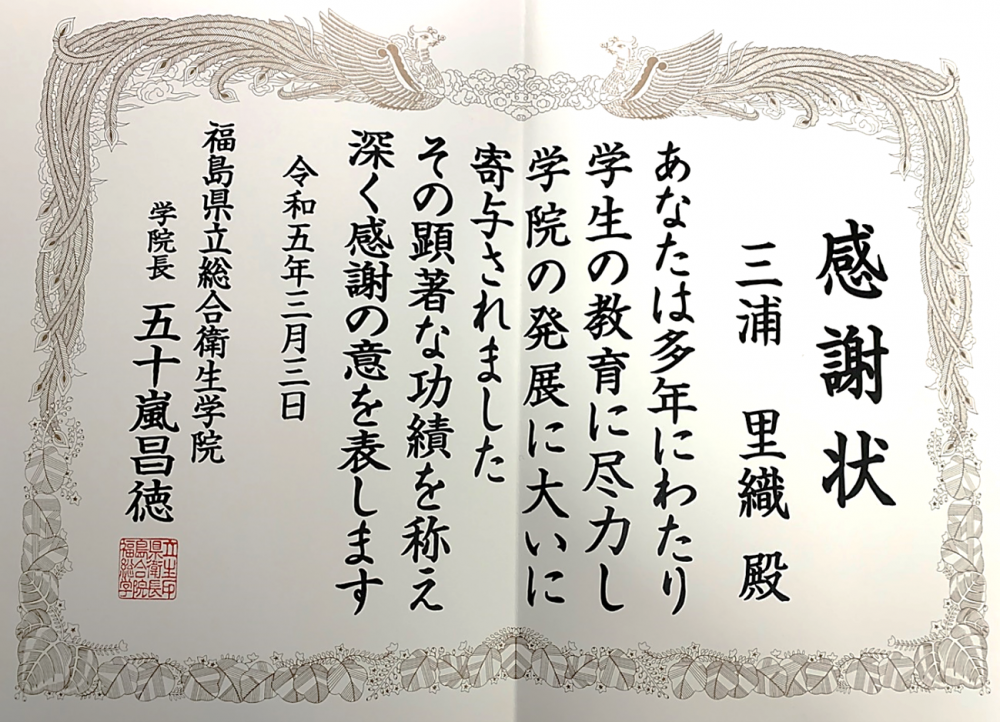 感謝状
三浦 里織 殿
あなたは多年にわたり
学生の教育に尽力し
学院の発展に大いに
寄与されました
その顕著な功績を称え
深く感謝の意を表します
令和五年三月三日
福島県立総合衛生学院
学院長 五十嵐昌徳